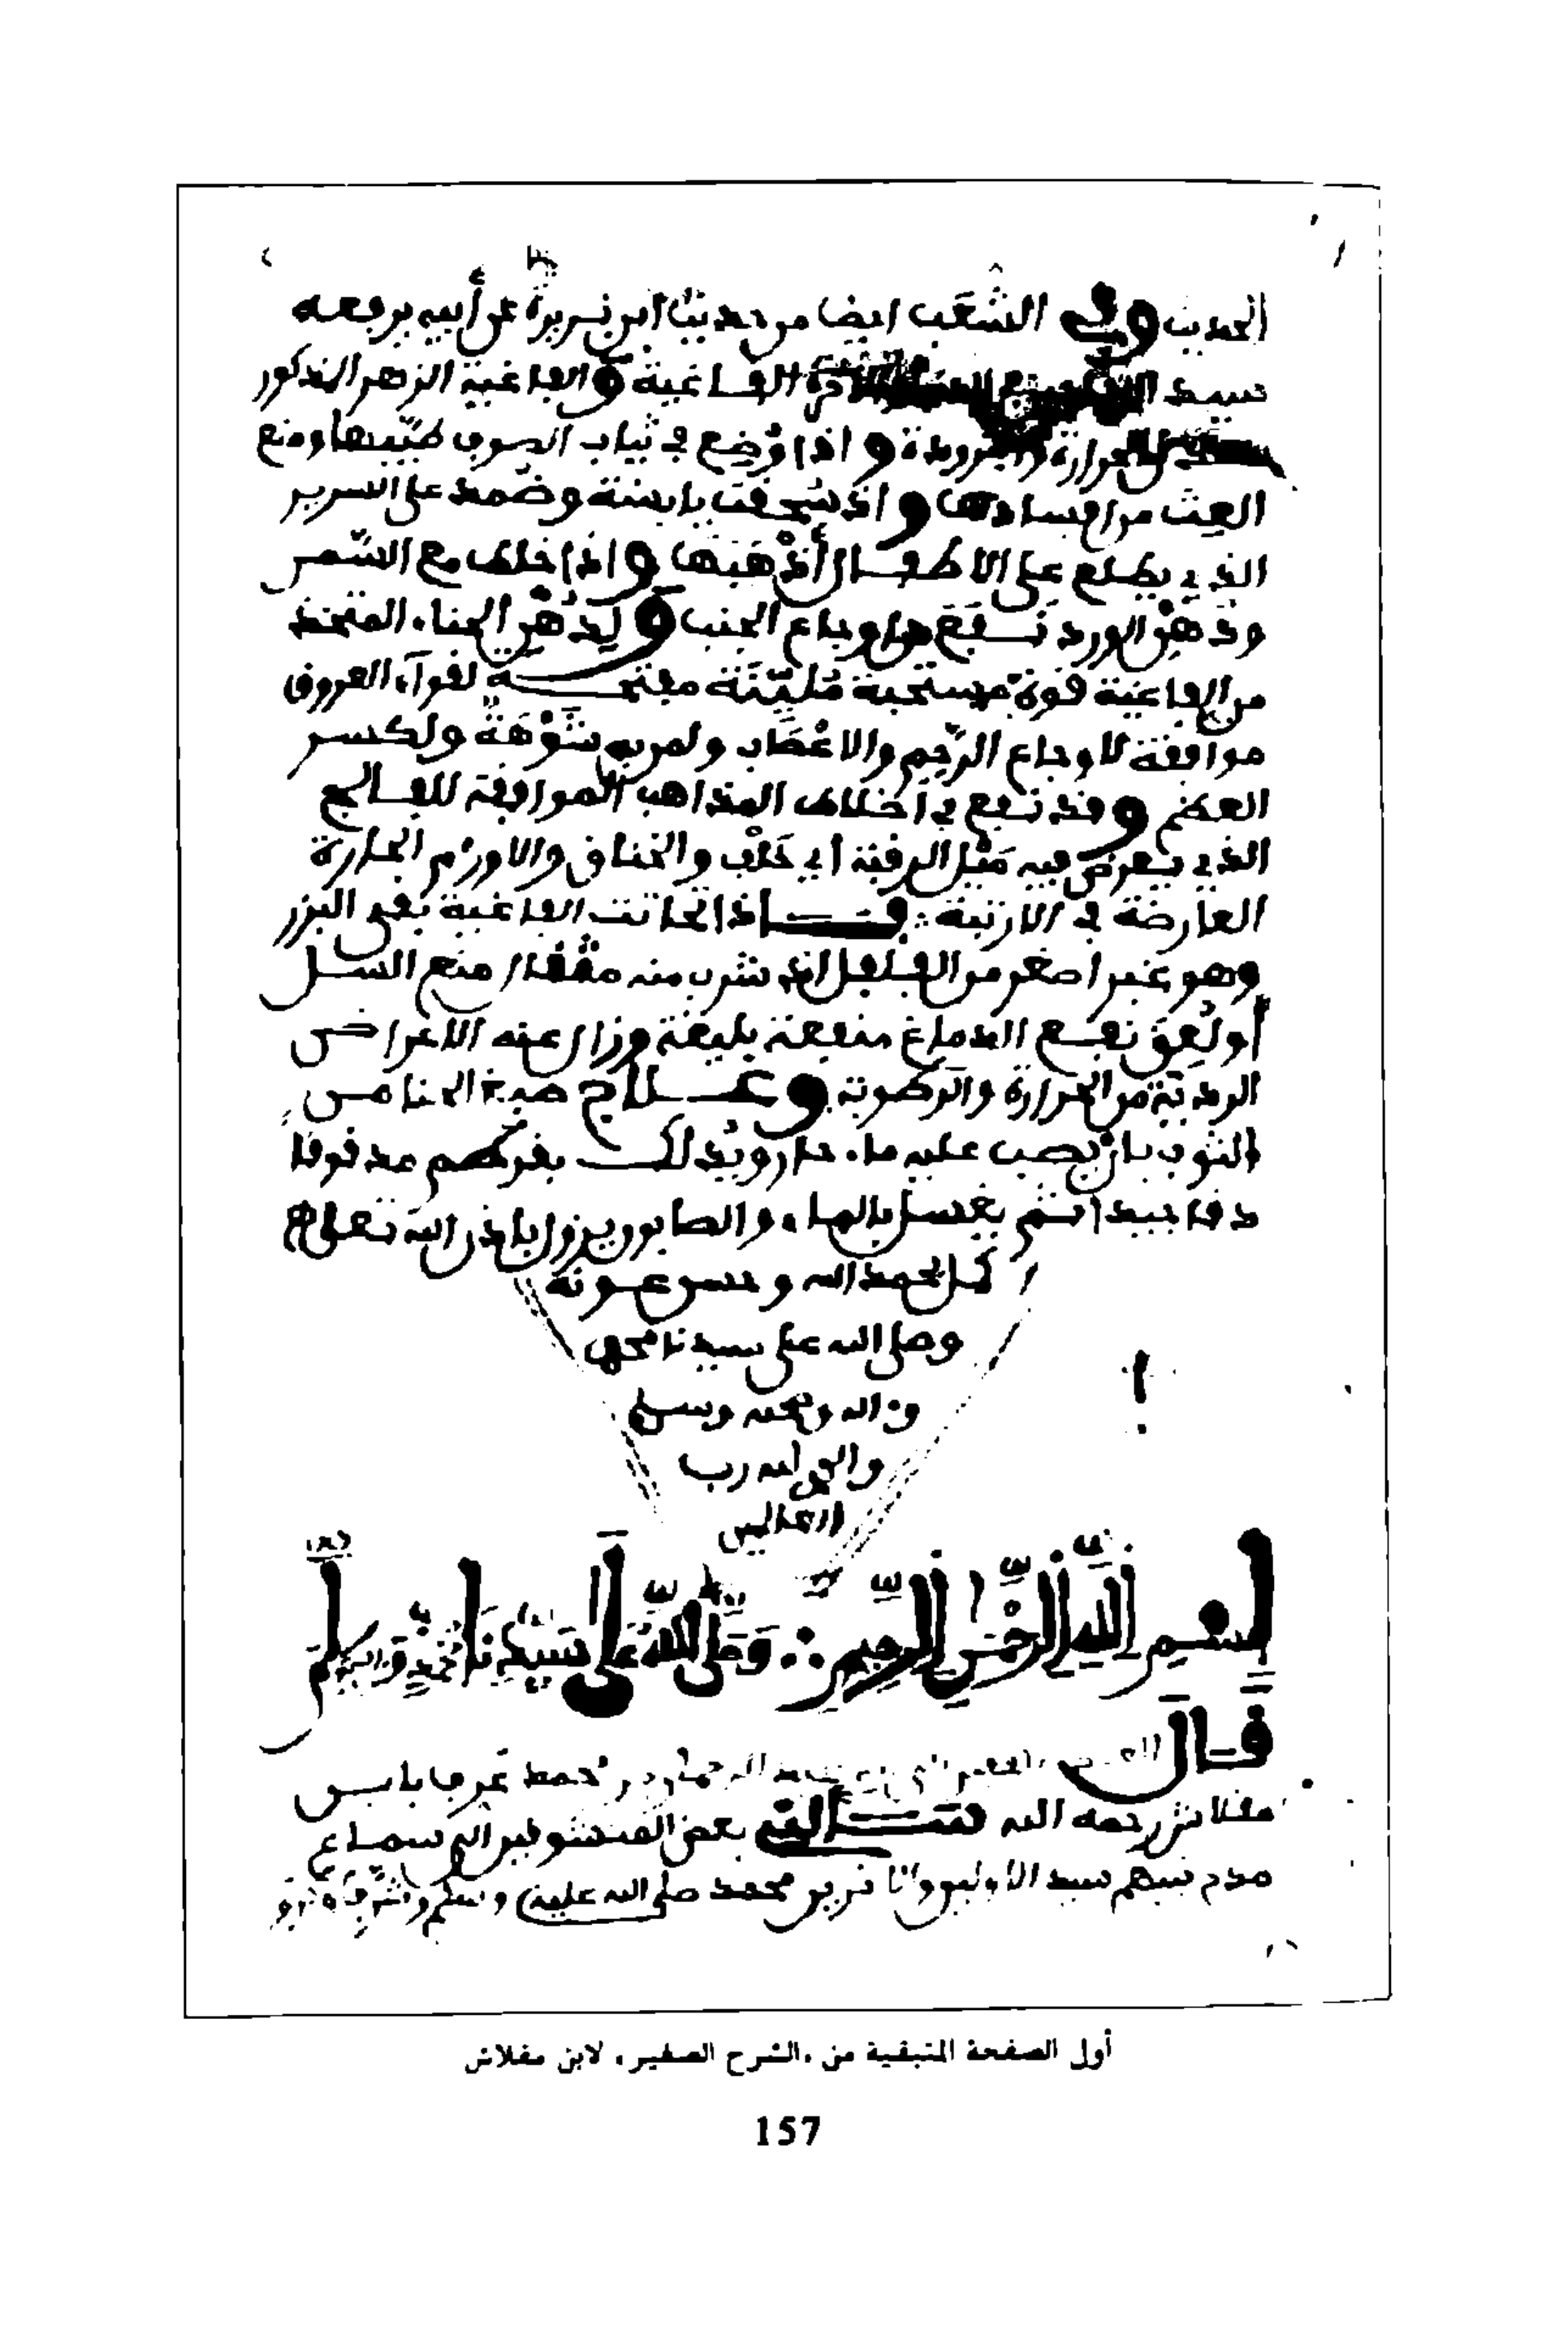 الحديث وفي الشعب ايضا من حديث ابن بريرة عن أبيه يرفعه
سيد الفاغية والفاغية الزهر المذكور
الحرارة والبرودة واذا وُضِع في ثياب الصوف طيّبها ومنع
العث من افسادها واذ سُحِقت يابسة وضمد على السرير
الذي يطلع على الاطفال أذْهَبَها واذا خلط مع الشمع
ودهن الورد نفع من اوجاع الجنب ولِدُهْنِ الحناء المتخذ
من الفاغية قوة مسخنة مُليّنة مفتحة لفواه العروق
موافقة لاوجاع الرّحِم والاعْصَاب ولمن به شَوْهَة ولكسر
العظم وقد تقع في اخلاط المذاهب الموافقة للفالج
الذي يعرض فيه مَيْل الرقبة الى خَلْف والخناق والاورام الحارة
العارضة في الارنبة فاذا كانت الفاغية بغير البزر
وهو غبر اصغر من الفلفل اذا شرب منه مثقال منع السل
أو لُعِقَ نفع الدماغ منفعة بليغة وزال عنه الاعراض
الردية من الحرارة والرطوبة وعلاج صبغ الحنا من
الثوب بان يصب عليه ماء حار ويُدلك مدقوقا
دقا جيدا ثم يغسل بالماء والصابون يزول باذن الله تعلى اه
كمل بحمد الله وحسن عونه
وصلى الله على سيدنا محمد
وءاله وصحبه وسلم
والحمد لله رب
العالمين
بسم الله الرحمن الرحيم وَصَلَّى اللهُ عَلَى سَيِّدِنَا مُحَمَّدٍ وَءاله وسلم
قال العبد الفقير عبد الرحمان بن محمد عُرف بابن
مقلاش رحمه الله سألني بعض المتشوقين الى سماع
مدح سيد الاولين والاخرين محمد صلى الله عليه وسلم وشرف
أول الصفحة المتبقية من «الشرح الصغير» لابن مقلاش
157